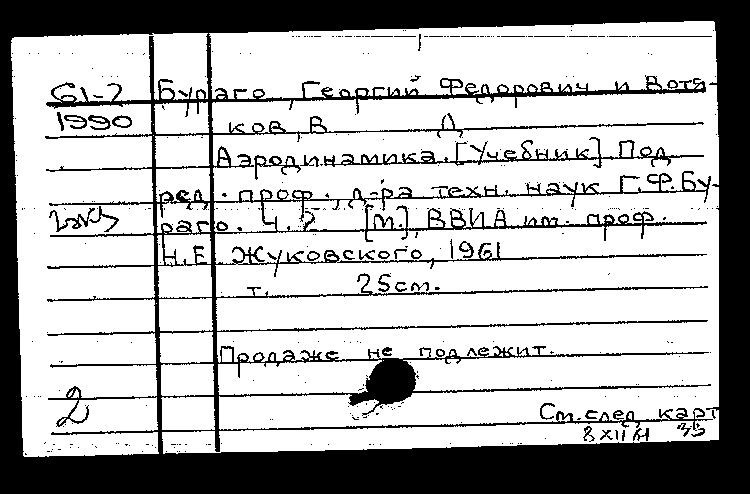 61-7 Бураго, Георгий Федорович и Вотя-
1990 ков, В Д
Аэродинамика. [Учебник]. Под
ред. проф., д-ра техн. наук Г.Ф. Бу-
2 экз раго. Ч. 2. [М.], ВВИА им. проф.
Н.Е. Жуковского, 1961
т. 25 см.
Продаже не подлежит.
2
См. след. карт
8 XII 61